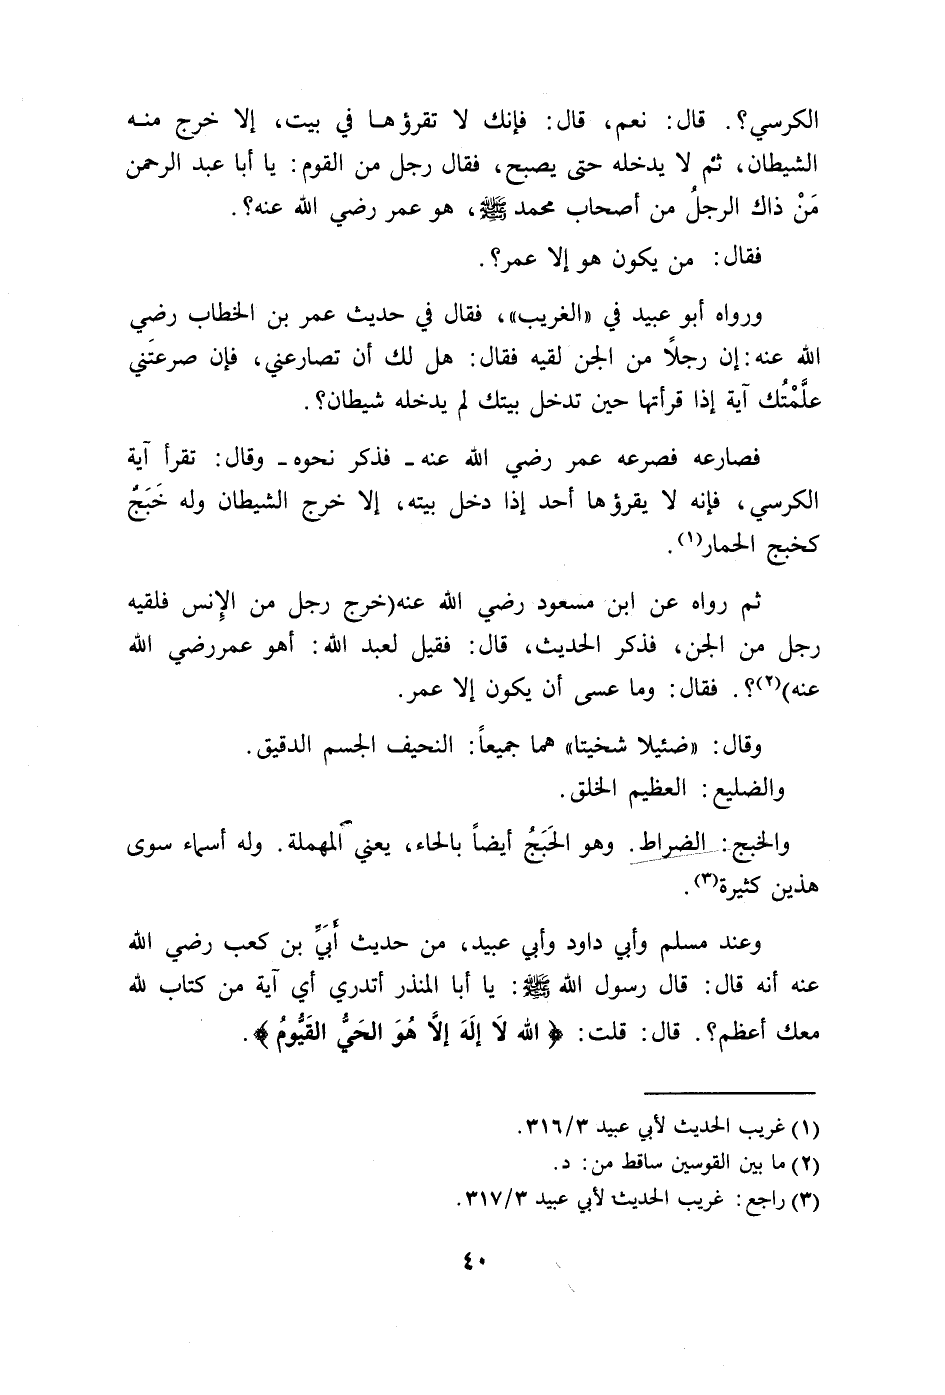 الكرسي؟. قال: نعم، قال: فإنك لا تقرؤها في بيت، إلا خرج منه
الشيطان، ثم لا يدخله حتى يصبح، فقال رجل من القوم: يا أبا عبد الرحمن
مَنْ ذاك الرجلُ من أصحاب محمد ﷺ، هو عمر رضي الله عنه؟.
فقال: من يكون هو إلا عمر؟.
ورواه أبو عبيد في «الغريب»، فقال في حديث عمر بن الخطاب رضي
الله عنه: إن رجلاً من الجن لقيه فقال: هل لك أن تصارعني، فإن صرعتَني
علَّمْتُك آية إذا قرأتها حين تدخل بيتك لم يدخله شيطان؟.
فصارعه فصرعه عمر رضي الله عنه ـ فذكر نحوه ـ وقال: تقرأ آية
الكرسي، فإنه لا يقرؤها أحد إذا دخل بيته، إلا خرج الشيطان وله خَبَجٌ
كخبج الحمار(١).
ثم رواه عن ابن مسعود رضي الله عنه(خرج رجل من الإنس فلقيه
رجل من الجن، فذكر الحديث، قال: فقيل لعبد الله: أهو عمررضي الله
عنه)(٢)؟. فقال: وما عسى أن يكون إلا عمر.
وقال: «ضئيلا شخيتا» هما جميعاً: النحيف الجسم الدقيق.
والضليع: العظيم الخلق.
والخبج: الضراط. وهو الحَبَجُ أيضاً بالحاء، يعني المهملة. وله أسماء سوى
هذين كثيرة(٣).
وعند مسلم وأبي داود وأبي عبيد، من حديث أُبَيِّ بن كعب رضي الله
عنه أنه قال: قال رسول الله ﷺ: يا أبا المنذر أتدري أي آية من كتاب لله
معك أعظم؟. قال: قلت: ﴿الله لَا إِلَهَ إِلَّا هُوَ الحَيُّ القَيُّومُ﴾.
(١) غريب الحديث لأبي عبيد ٣١٦/٣.
(٢) ما بين القوسين ساقط من: د.
(٣) راجع: غريب الحديث لأبي عبيد ٣١٧/٣.
٤٠